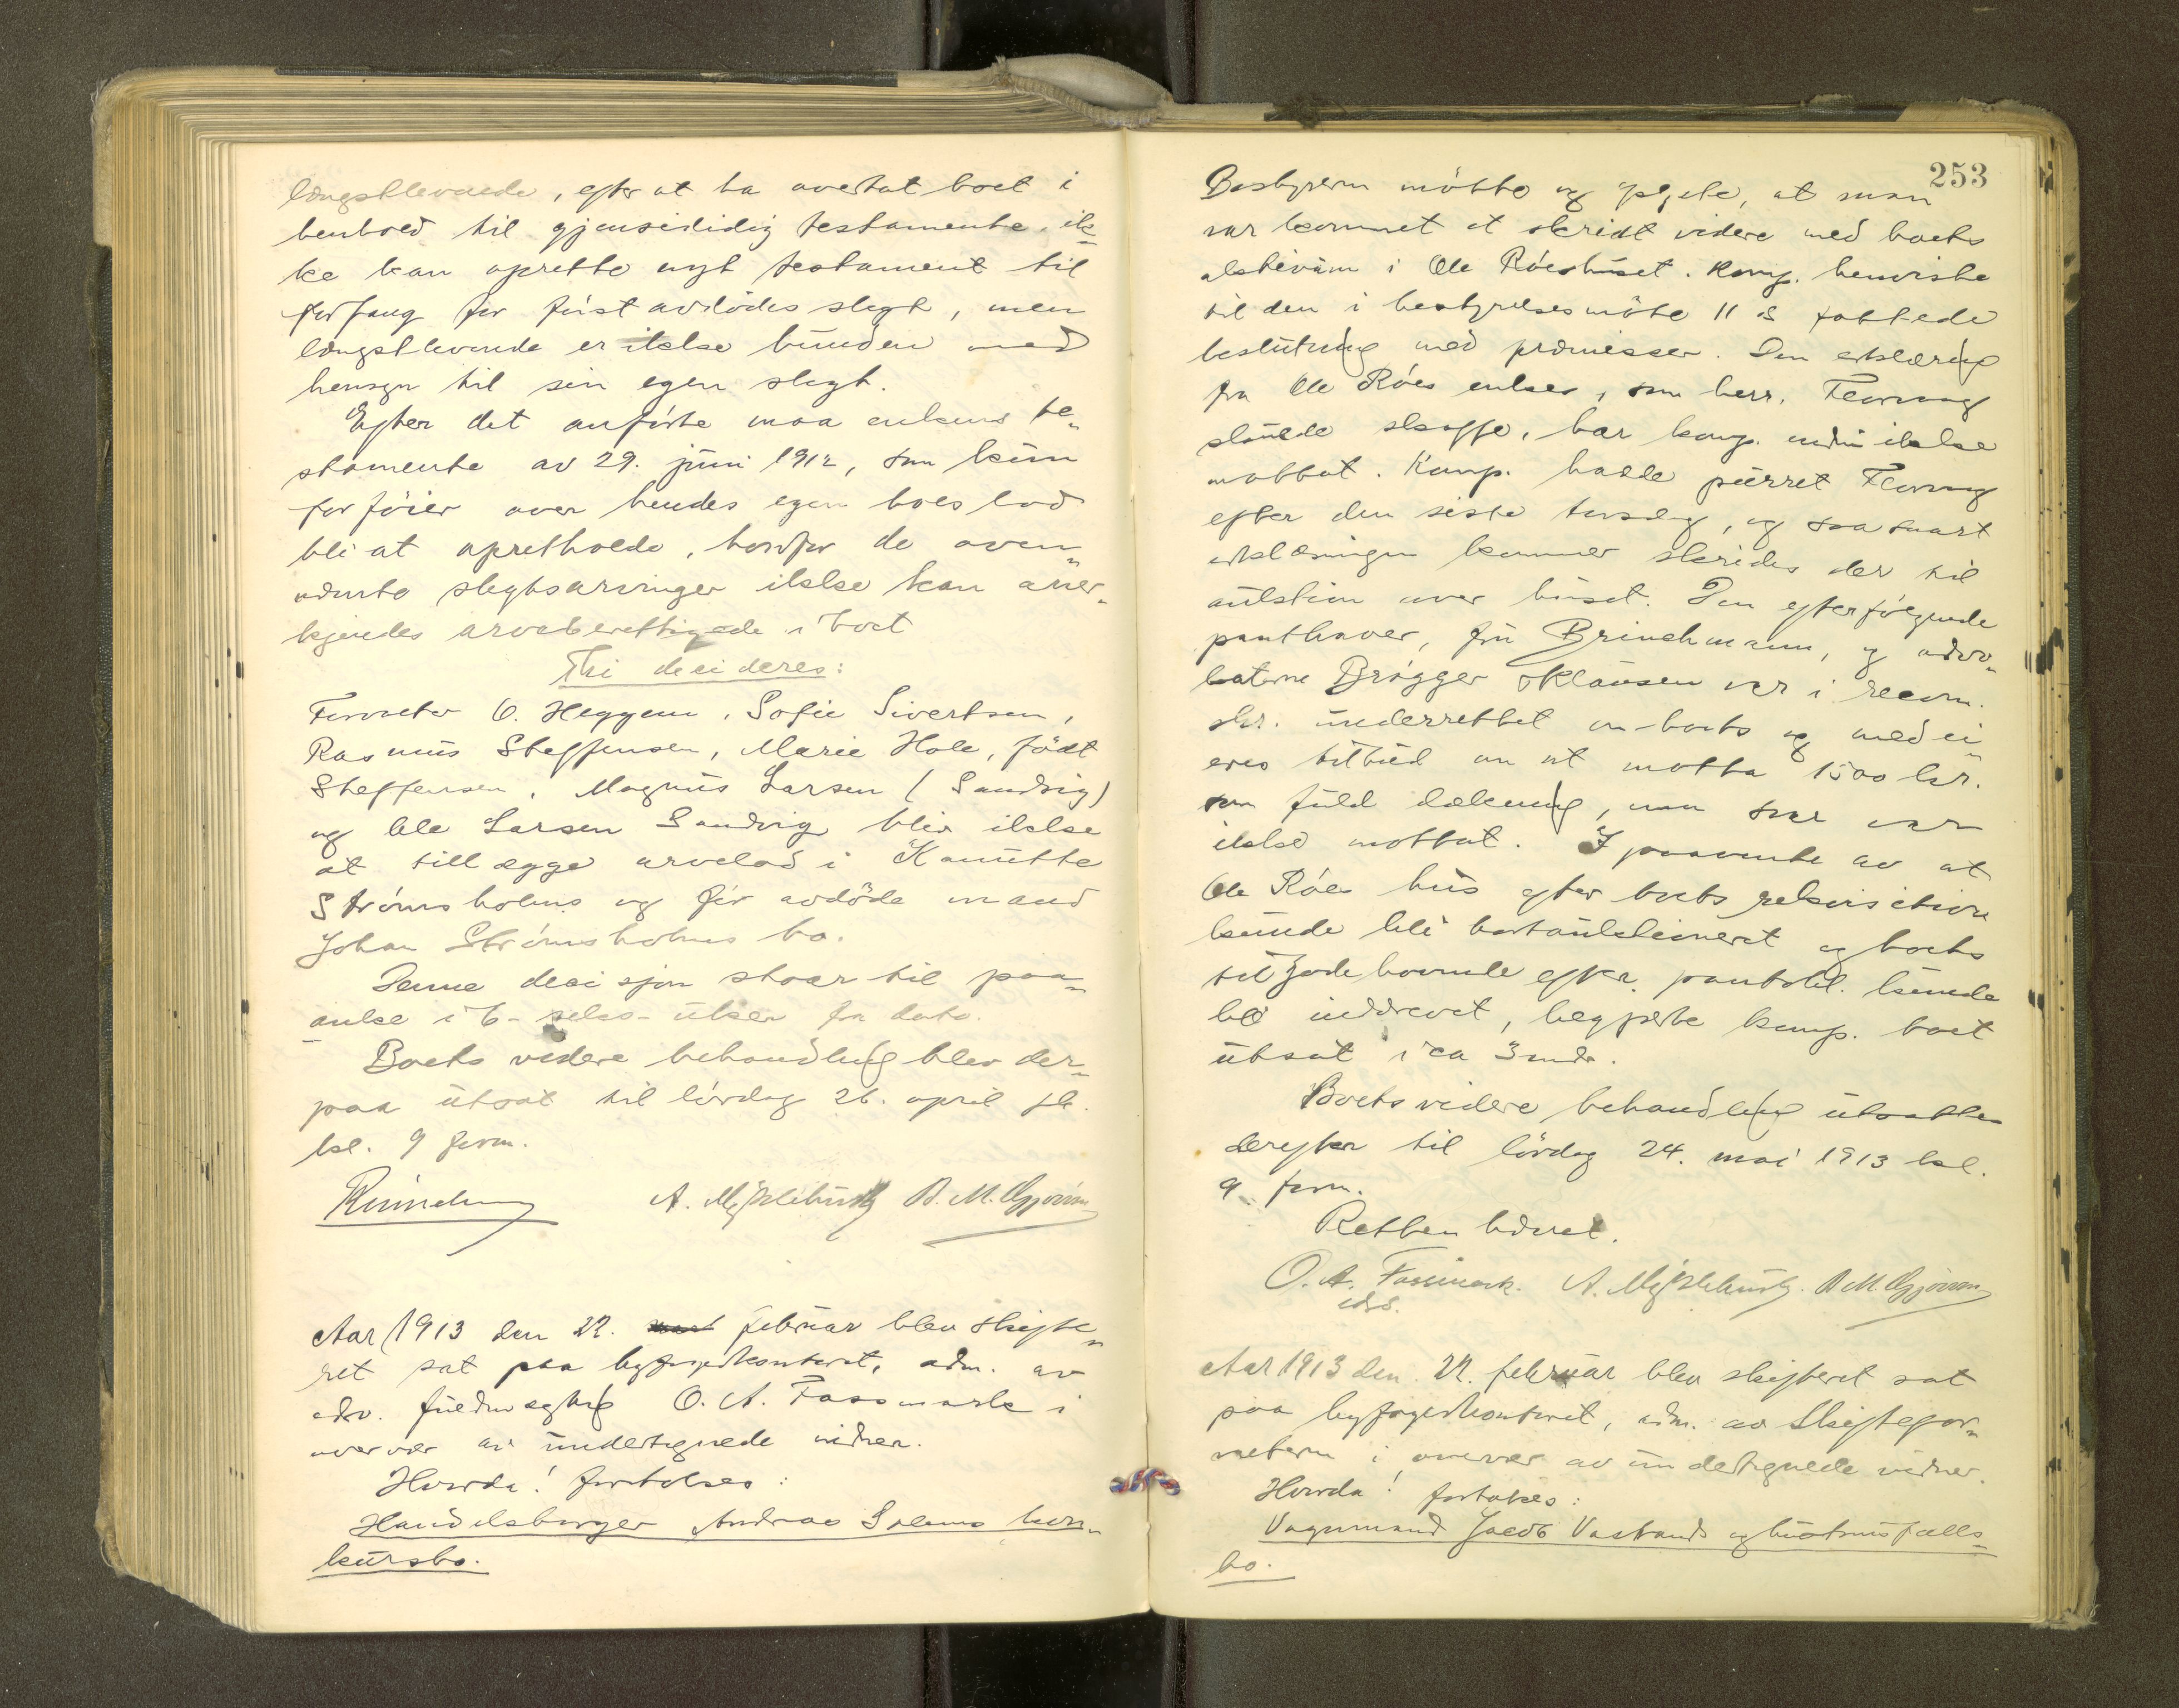 længstlevende, efter at ha overtat boet i
henhold til gjensididig testamente, ik-
ke kan oprette nyt testament til
forfang for først avdødes slegt, men
længstlevende er ikke bunden med
hensyn til sin egen slegt.
Efter det anførte maa enkens te-
stamente av 29. juni 1912, som kun
forføier over hendes egen boeslod
bli at opretholde, hvorfor de oven-
nævnte slegtsarvinger ikke kan aner-
kjendes arveberettigede i boet
Thi decideres:
Forvalter O. Heggem, Sofie Sivertsen,
Rasmus Steffensen, Marie Hole, født
Steffensen, Magnus Larsen (Sandvig)
og Ole Larsen Sandvig blir ikke
at tillægge arvelod i Kanutte
Strømsholms og før avdøde mand
Johan Strømsholms bo.
Denne decisjon staar til paa-
anke i 6 - seks - uker fra dato.
Boets videre behandling blev der-
paa utsat til lørdag 26. april
kl. 9 form.
A. M. Gjøvim
Aar 1913 den 22. februar blev skifte-
ret sat paa byfogedkontoret, adm. av
edsv. fuldmægtig O. A. Fassmark i
overvær av undertegnede vidner.
Hvorda! foretokes:
Handelsborger Andreas Solems kon-
kursbo.
253
Bestyreren møtte og oplyste, at man
var kommet et skridt videre med boets
aktivum i Ole Róeshuset. Komp. henviste
til den i bestyrelsesmøte 11 ds fattede
beslutning med præmisser. Den erklæring
fra Ole Róes enke, som herr. Flovning
skulde skaffe, har komp. endnu ikke
mottat. Komp. hadde purret
efter den siste torsdag, og saa snart
erklæringen kommer skrides der til
auktion over huset. Den efterfølgende
panthaver, fru Brinchmann, og advo-
katerne Brøgger & Klausen var i recom.
skr. underrettet om boets og medei-
eres tilbud om at motta 1500 kr.
som fuld dækning, men svar var
ikke mottat. I paavente av at
Ole Róes hus efter boets rekvisition
kunde bli bortauktioneret og boets
tilgodehavende efter pantobl. kunde
bli inddrevet, begjærte komp. boet
utsat i ca 3 mdr.
Boets videre behandling utsattes
derefter til lørdag 24. mai 1913 kl.
9 form.
Retten hævet.
O. A. Fassmark. A. M. Gjøvim
edsv.
Aar 1913 den 22. februar blev skifteret sat
paa byfogedkontoret, adm. av skiftefor-
valteren i overvær av undertegnede vidner.
Hvorda! foretokes:
Vognmand Jacob Vastands og hustrus fælles-
bo.